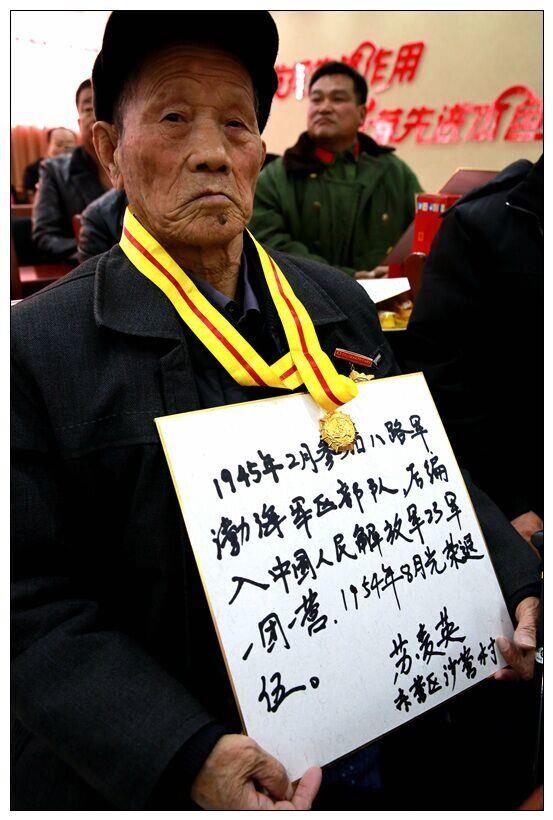 作用
先进
1945年2月参加八路军
渤海军区部队,后编
入中国人民解放军23军
一团一营.1954年8月光荣退
伍。
苏凌英
东营区沙营村